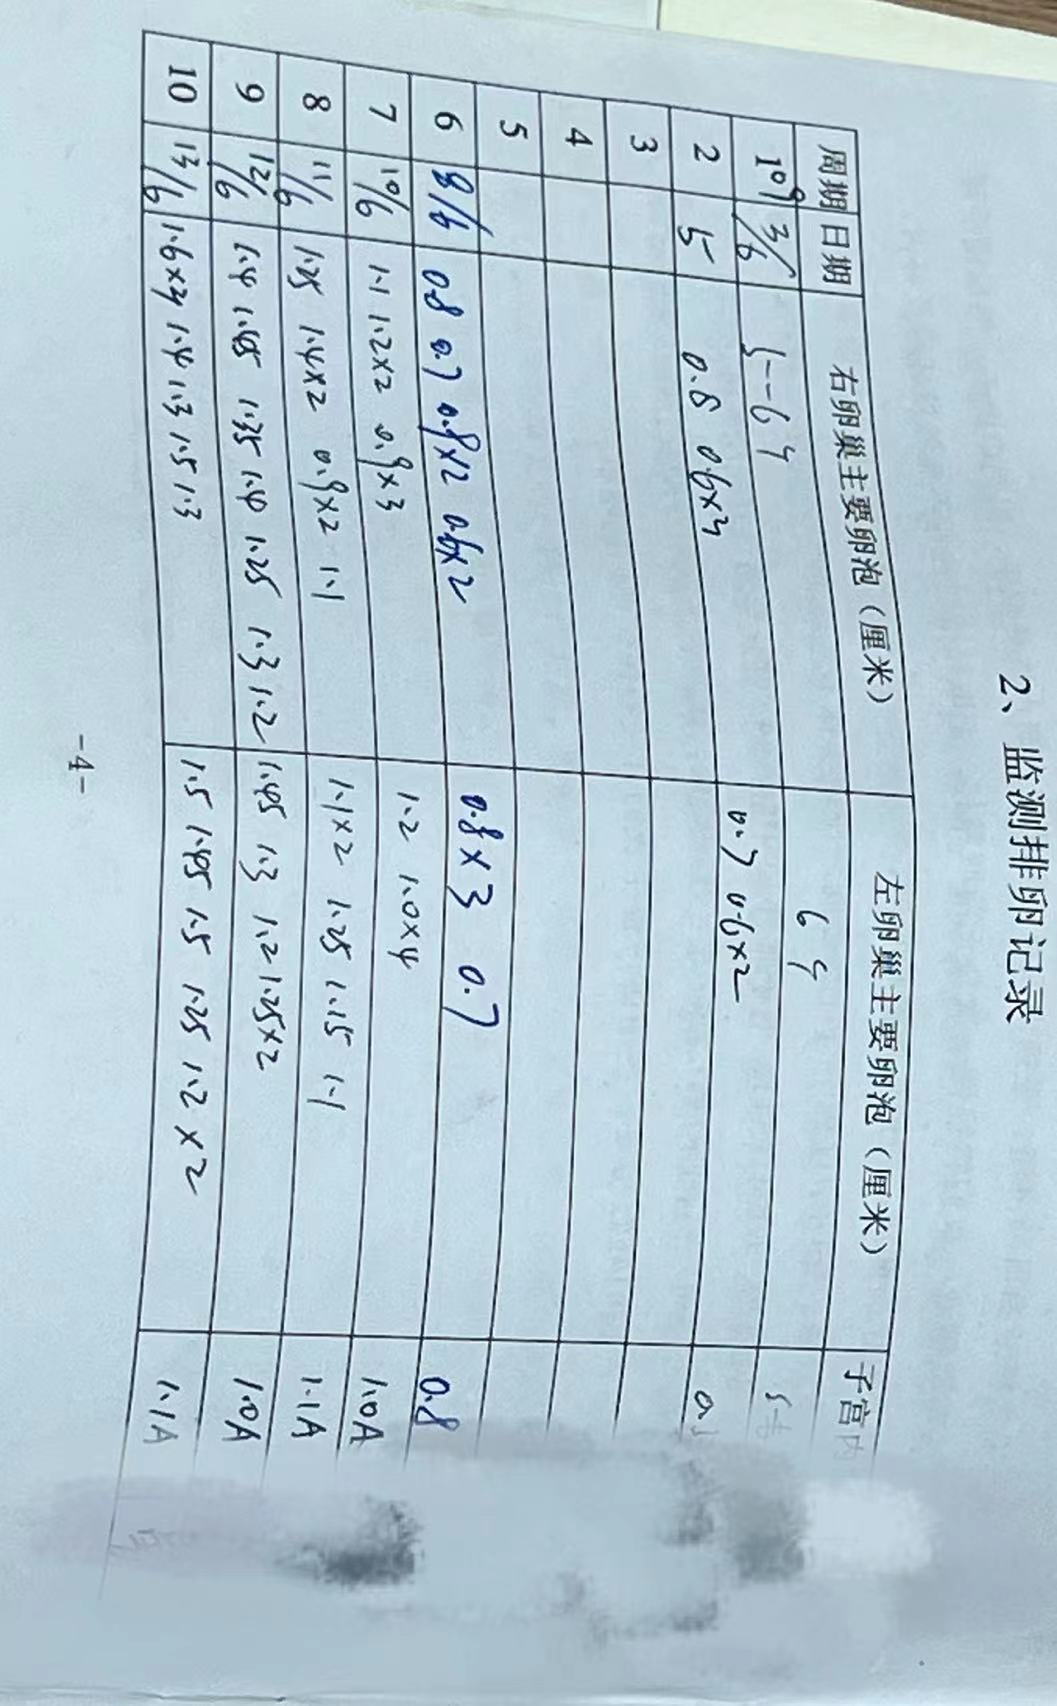 2、监测排卵记录
周期 日期 右卵巢主要卵泡（厘米） 左卵巢主要卵泡（厘米） 子宫内
3/6 5-6个 6个
2 5 0.8 0.6x3 0.7 0.6x2
3
4
5
6 8/6 0.8 0.7 0.8x2 0.6x2 0.8x3 0.7 0.8
7 10/6 1.1 1.2x2 0.9x3 1.2 1.0x4 1.0A
8 11/6 1.25 1.4x2 0.9x2 1.1 1.1x2 1.25 1.15 1.1 1.1A
9 12/6 1.4 1.45 1.35 1.4 1.25 1.3 1.2 1.45 1.3 1.2 1.25x2 1.0A
10 13/6 1.6x3 1.4 1.3 1.5 1.3 1.5 1.45 1.5 1.25 1.2x2 1.1A
-4-